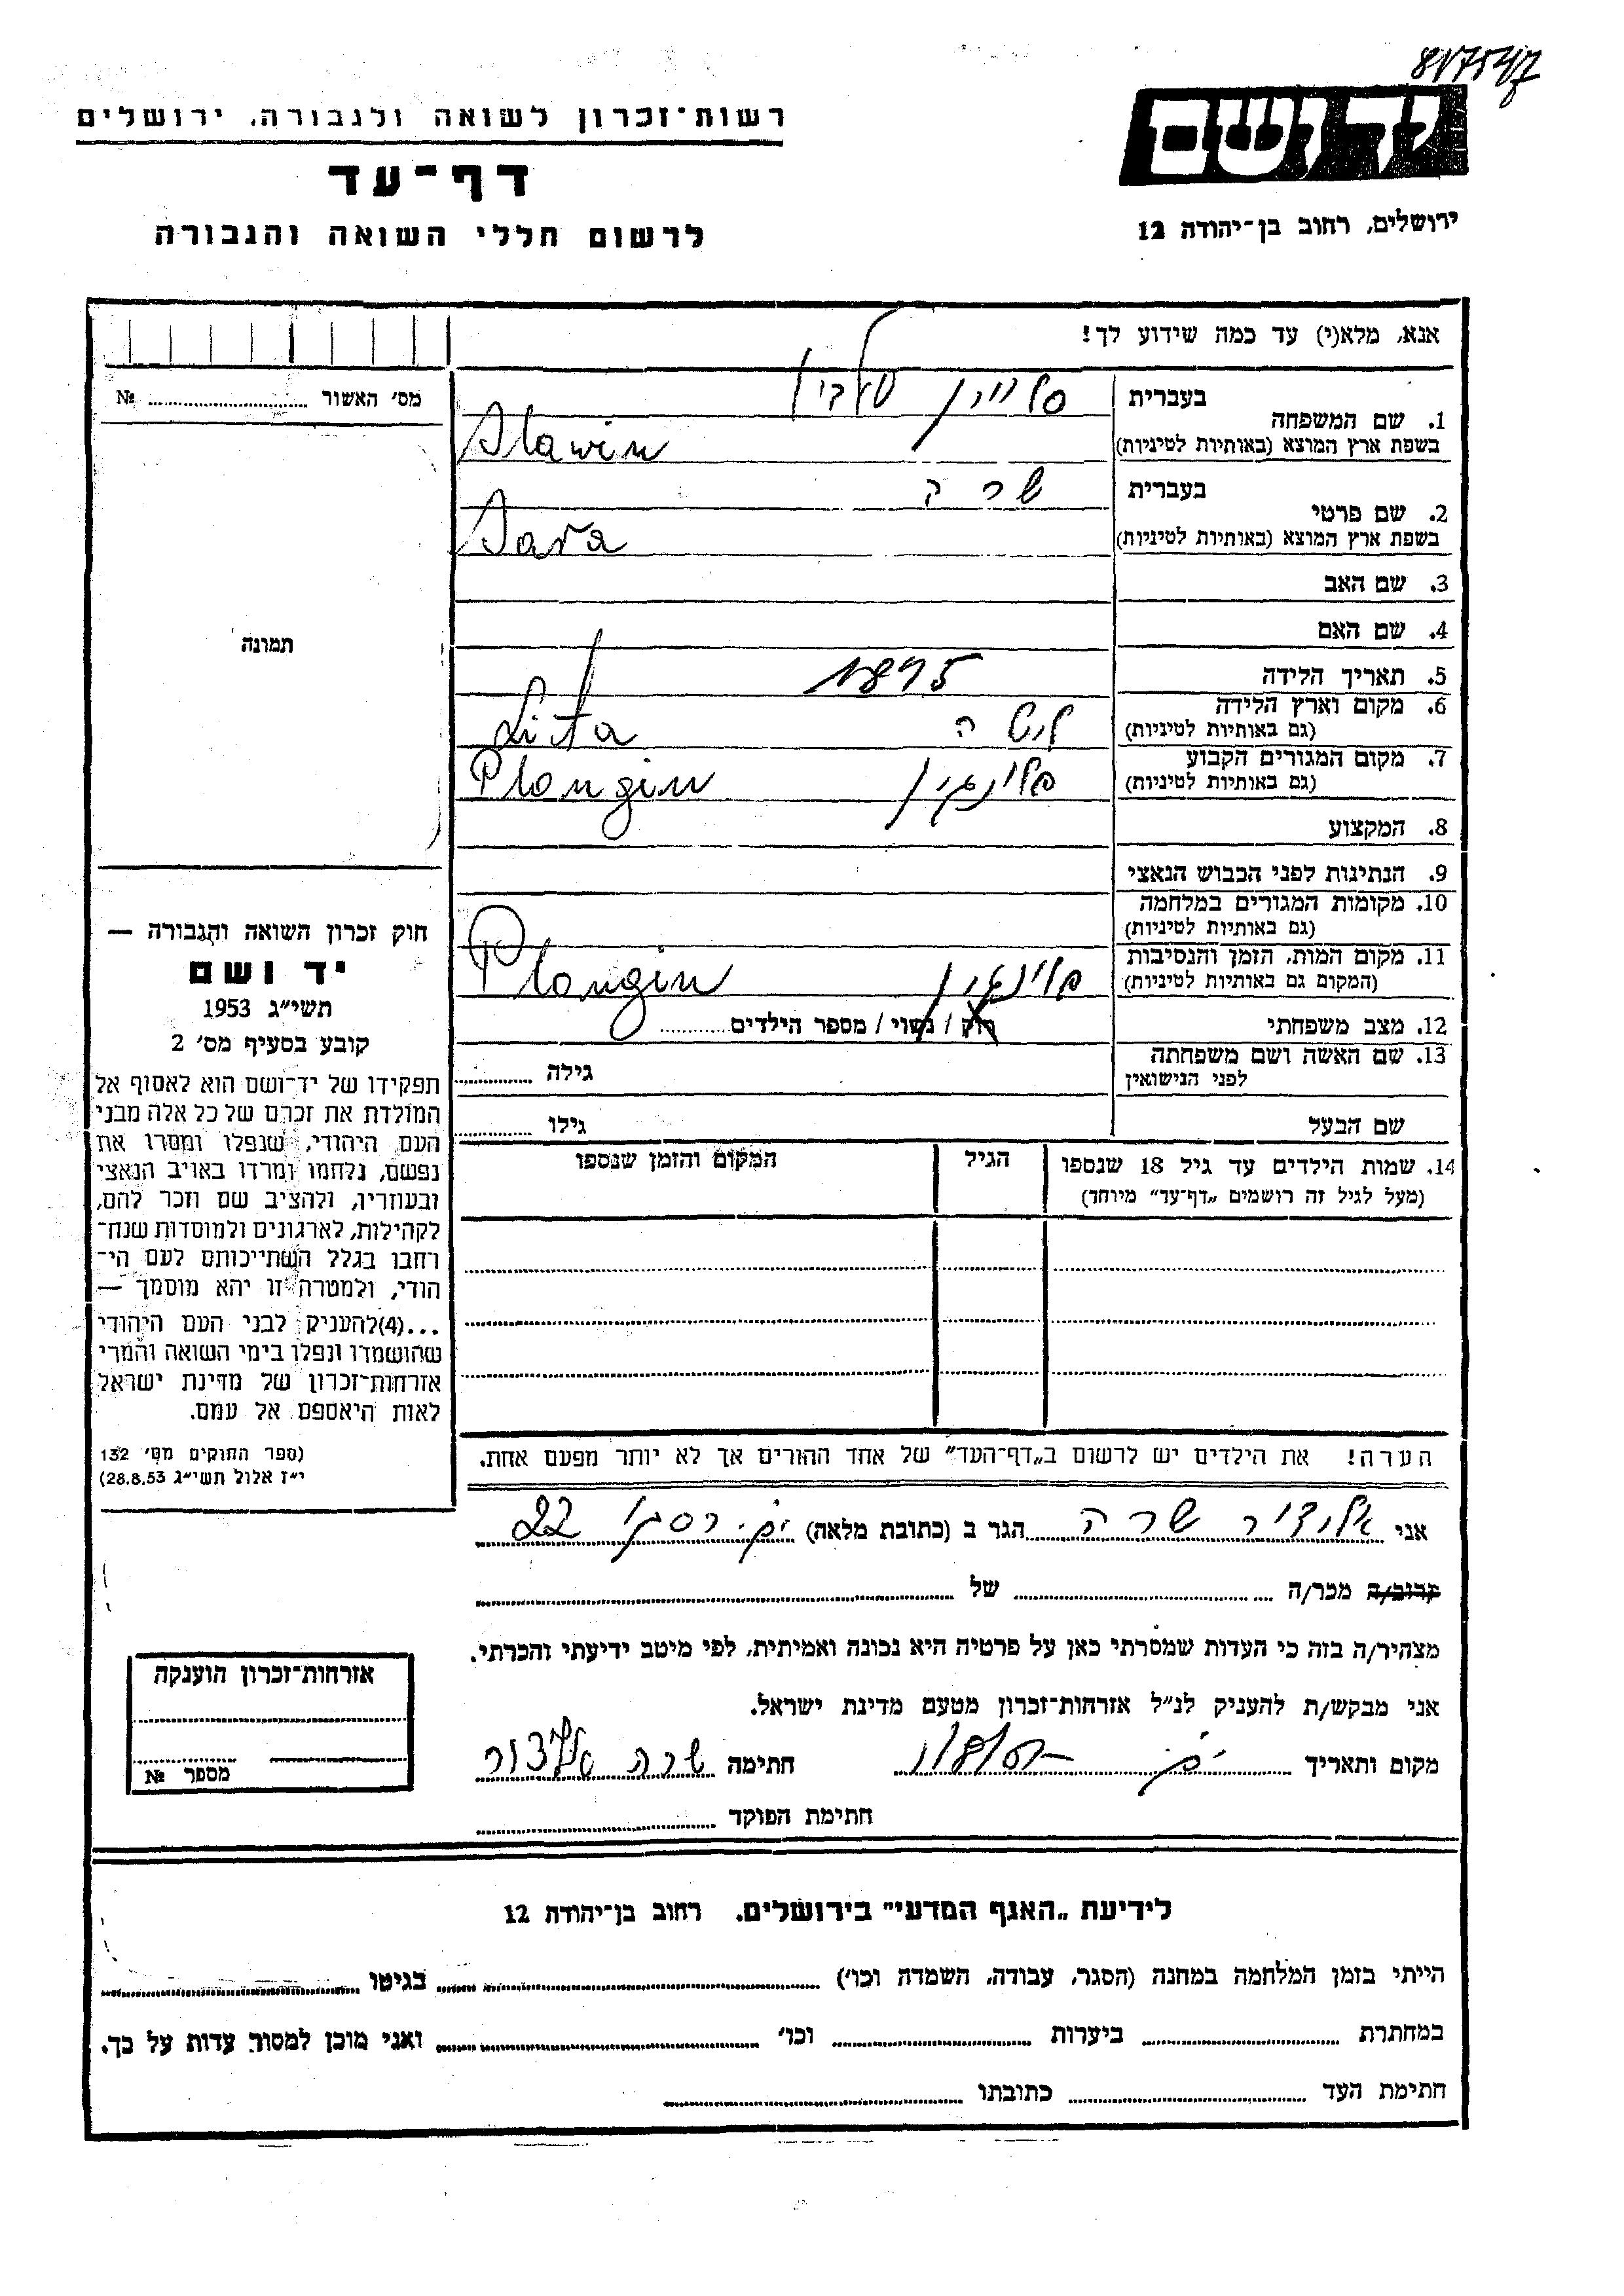 יד ושם
ירושלים, רחוב בן־יהודה 12
רשות־זכרון לשואה ולגבורה, ירושלים
דף־עד
לרשום חללי השואה והגבורה
אנא, מלא(י) עד כמה שידוע לך!
מס׳ האשור ........ №
תמונה
1. שם המשפחה
בעברית
סלוין
בשפת ארץ המוצא (באותיות לטיניות)
Slawin
2. שם פרטי
בעברית
שרה
בשפת ארץ המוצא (באותיות לטיניות)
Sara
3. שם האב
4. שם האם
5. תאריך הלידה
1895
6. מקום וארץ הלידה
(גם באותיות לטיניות)
ליטה Lita
7. מקום המגורים הקבוע
(גם באותיות לטיניות)
פלונגין Plongin
8. המקצוע
9. הנתינות לפני הכבוש הנאצי
10. מקומות המגורים במלחמה
(גם באותיות לטיניות)
11. מקום המות, הזמן והנסיבות
(המקום גם באותיות לטיניות)
פלונגין Plongin
12. מצב משפחתי
רוק / נשוי / מספר הילדים ........
13. שם האשה ושם משפחתה
לפני הנישואין
גילה ........
שם הבעל
גילו ........
14. שמות הילדים עד גיל 18 שנספו
(מעל לגיל זה רושמים „דף־עד״ מיוחד)
הגיל
המקום והזמן שנספו
חוק זכרון השואה והגבורה —
יד ושם
תשי״ג 1953
קובע בסעיף מס׳ 2
תפקידו של יד־ושם הוא לאסוף אל
המולדת את זכרם של כל אלה מבני
העם היהודי, שנפלו ומסרו את
נפשם, נלחמו ומרדו באויב הנאצי
ובעוזריו, ולהציב שם וזכר להם,
לקהילות, לארגונים ולמוסדות שנח־
רבו בגלל השתייכותם לעם הי־
הודי, ולמטרה זו יהא מוסמך —
...(4)להעניק לבני העם היהודי
שהושמדו ונפלו בימי השואה והמרי
אזרחות־זכרון של מדינת ישראל
לאות היאספם אל עמם.
(ספר החוקים מס׳ 132
י״ז אלול תשי״ג 28.8.53)
הערה! את הילדים יש לרשום ב„דף־העד״ של אחד ההורים אך לא יותר מפעם אחת.
אני שרה הגר ב (כתובת מלאה) 22
קרוב/ה מכר/ה ........ של ........
מצהיר/ה בזה כי העדות שמסרתי כאן על פרטיה היא נכונה ואמיתית, לפי מיטב ידיעתי והכרתי.
אני מבקש/ת להעניק לנ״ל אזרחות־זכרון מטעם מדינת ישראל.
מקום ותאריך חתימה שרה
חתימת הפוקד ........
אזרחות־זכרון הוענקה
מספר №
לידיעת „האגף המדעי״ בירושלים, רחוב בן־יהודה 12
הייתי בזמן המלחמה במחנה (הסגר, עבודה, השמדה וכו׳) ........ בגיטו ........
במחתרת ........ ביערות ........ וכו׳ ........ ואני מוכן למסור עדות על כך.
חתימת העד ........ כתובתו ........